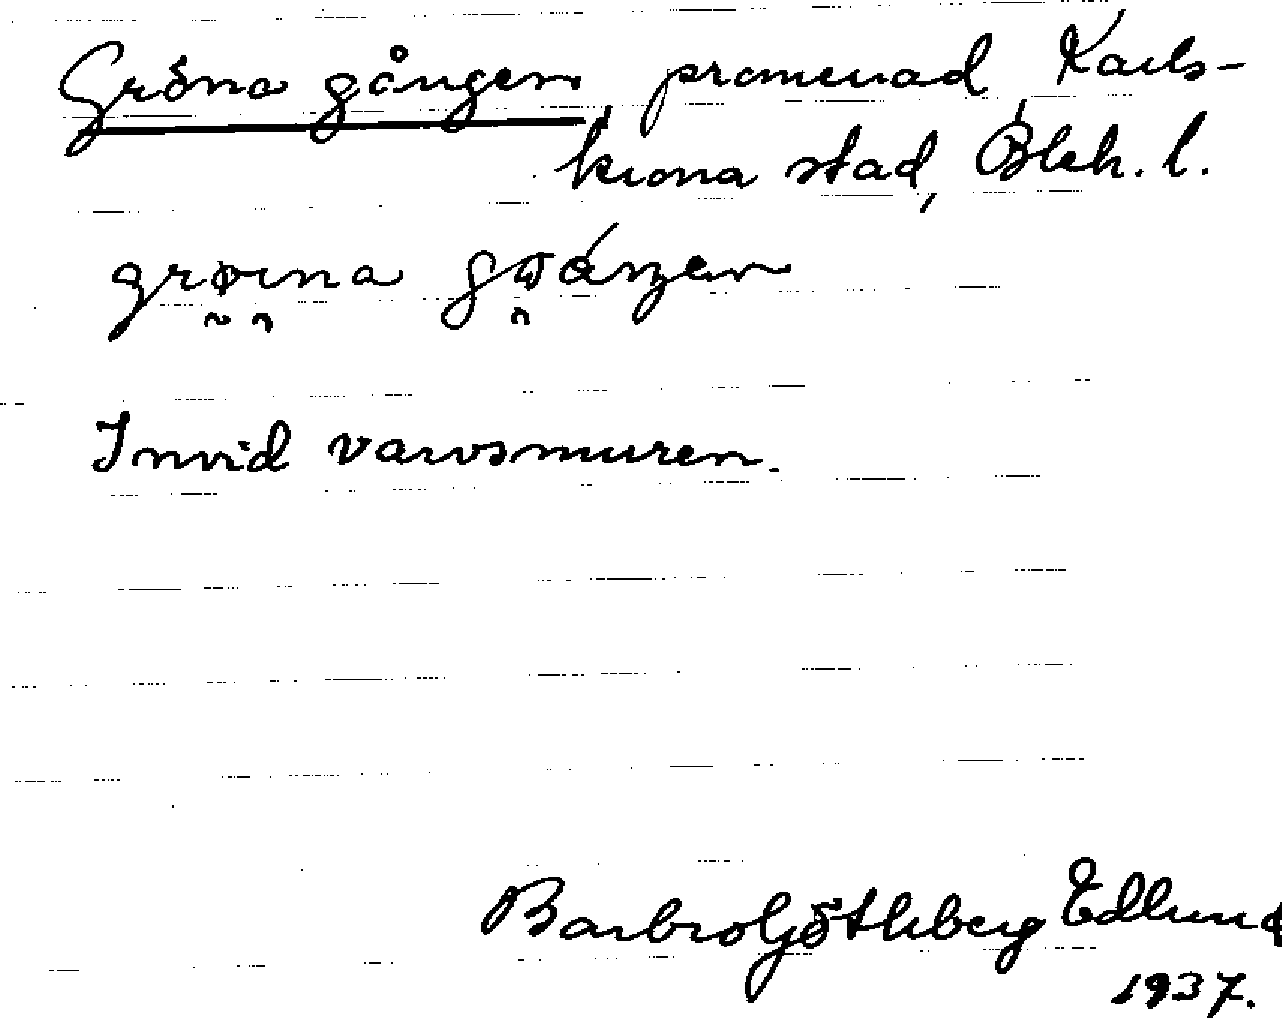 Gröna gången, promenad, Karls-
krona stad, Blek. l.
Invid varvsmuren.
Barbro Götheberg Edlund
1937.